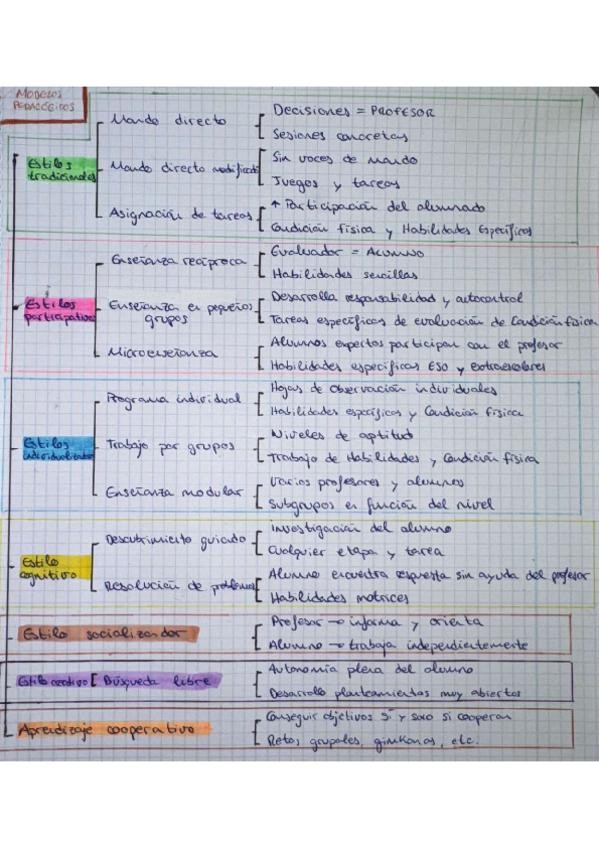 MODELOS
PEDAGÓGICOS
Estilos
tradicionales
Mando directo
Decisiones = PROFESOR
Sesiones concretas
Mando directo modificado
Sin voces de mando
Juegos y tareas
Asignación de tareas
↑ Participación del alumnado
Condición física y Habilidades Específicas
Estilos
participativos
Enseñanza recíproca
Evaluador = ALUMNO
Habilidades sencillas
Enseñanza en pequeños
grupos
Desarrolla responsabilidad y autocontrol
Tareas específicas de evaluación de Condición física
Microenseñanza
Alumnos expertos participan con el profesor
Habilidades específicas ESO y extraescolares
Estilos
individualizados
Programa individual
Hojas de observación individuales
Habilidades específicas y Condición física
Trabajo por grupos
Niveles de aptitud
Trabajo de Habilidades y Condición física
Enseñanza modular
Varios profesores y alumnos
Subgrupos en función del nivel
Estilo
cognitivo
Descubrimiento guiado
Investigación del alumno
Cualquier etapa y tarea
Resolución de problemas
Alumno encuentra respuesta sin ayuda del profesor
Habilidades motrices
Estilo socializador
Profesor → informa y orienta
Alumno → trabaja independientemente
Estilo creativo [ Búsqueda libre
Autonomía plena del alumno
Desarrollo planteamientos muy abiertos
Aprendizaje cooperativo
Conseguir objetivos SÍ y solo si cooperan
Retos grupales, ginkanas, etc.